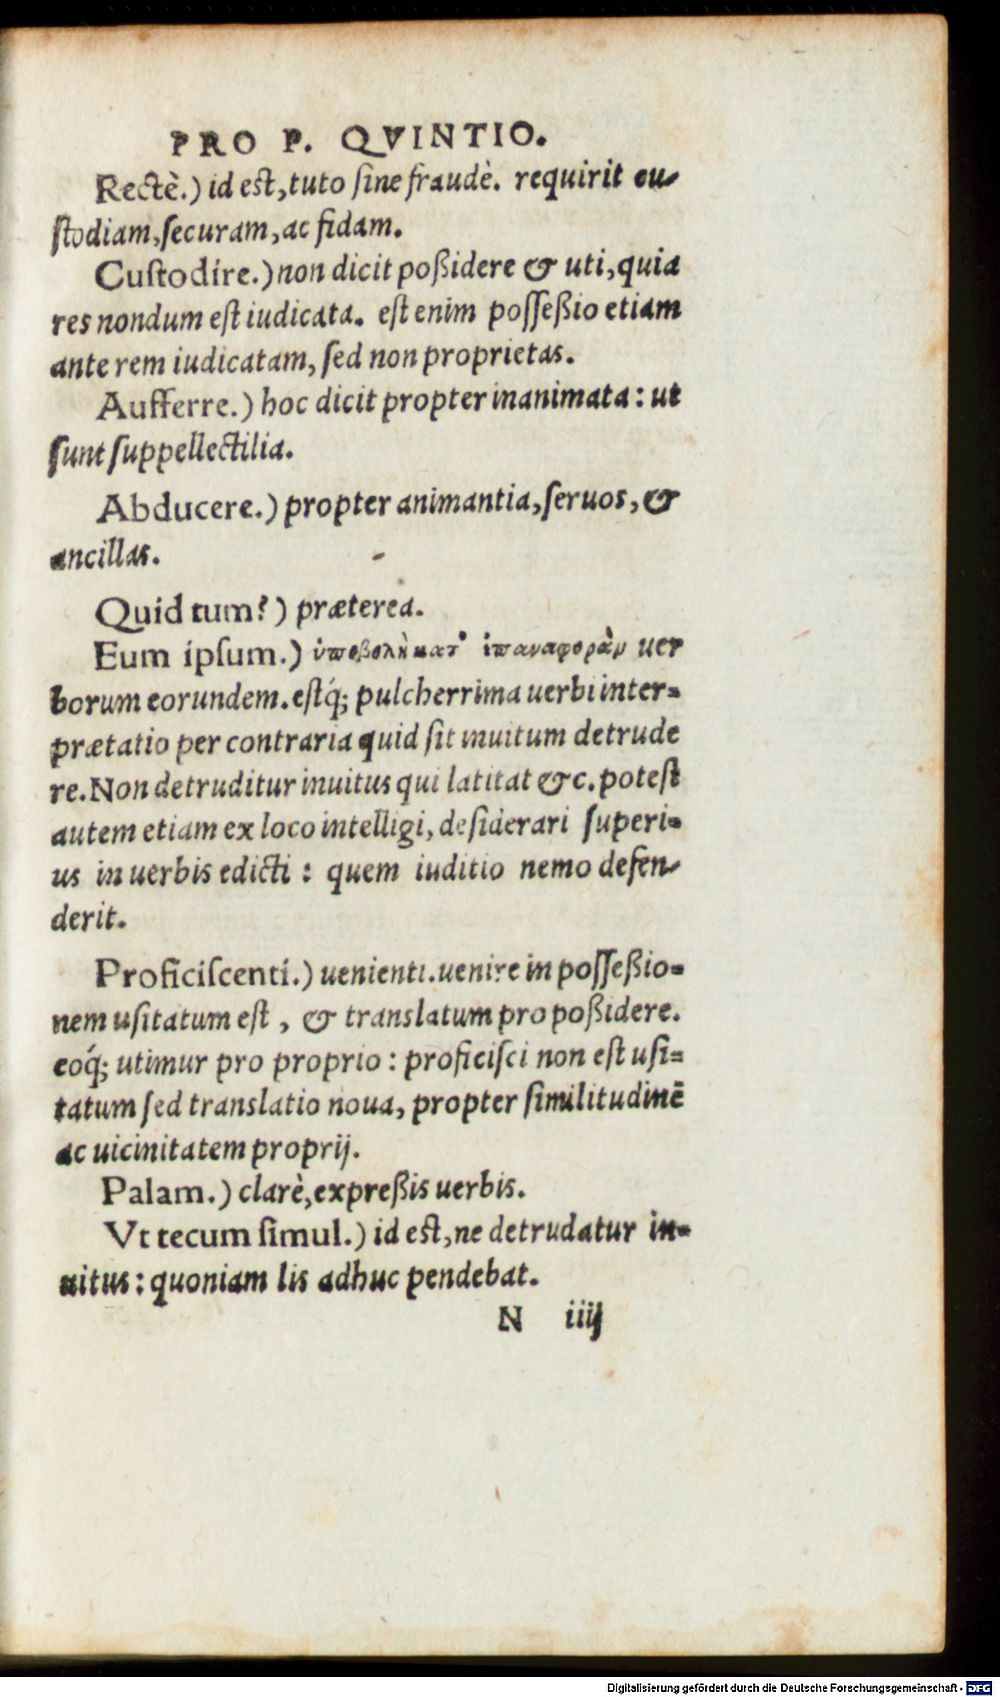 PRO P. QVINTIO.
Rectè.) id est, tuto sine fraudè. requirit cu-
stodiam, securam, ac fidam.
Custodire.) non dicit poßidere & uti, quia
res nondum est iudicata. est enim posseßio etiam
ante rem iudicatam, sed non proprietas.
Aufferre.) hoc dicit propter inanimata: ut
sunt suppellectilia.
Abducere.) propter animantia, seruos, &
ancillas.
Quid tum?) præterea.
Eum ipsum.) ὑποβολὴ κατ' ἐπαναφορὰν uer
borum eorundem. estq́; pulcherrima uerbi inter-
prætatio per contraria quid sit inuitum detrude
re. Non detruditur inuitus qui latitat &c. potest
autem etiam ex loco intelligi, desiderari superi-
us in uerbis edicti: quem iuditio nemo defen-
derit.
Proficiscenti.) uenienti. uenire in posseßio-
nem usitatum est, & translatum pro poßidere.
eoq́; utimur pro proprio: proficisci non est usi-
tatum sed translatio noua, propter similitudinē
ac uicinitatem proprij.
Palam.) clarè, expreßis uerbis.
Vt tecum simul.) id est, ne detrudatur in-
uitus: quoniam lis adhuc pendebat.
N iiij
Digitalisierung gefördert durch die Deutsche Forschungsgemeinschaft - DFG